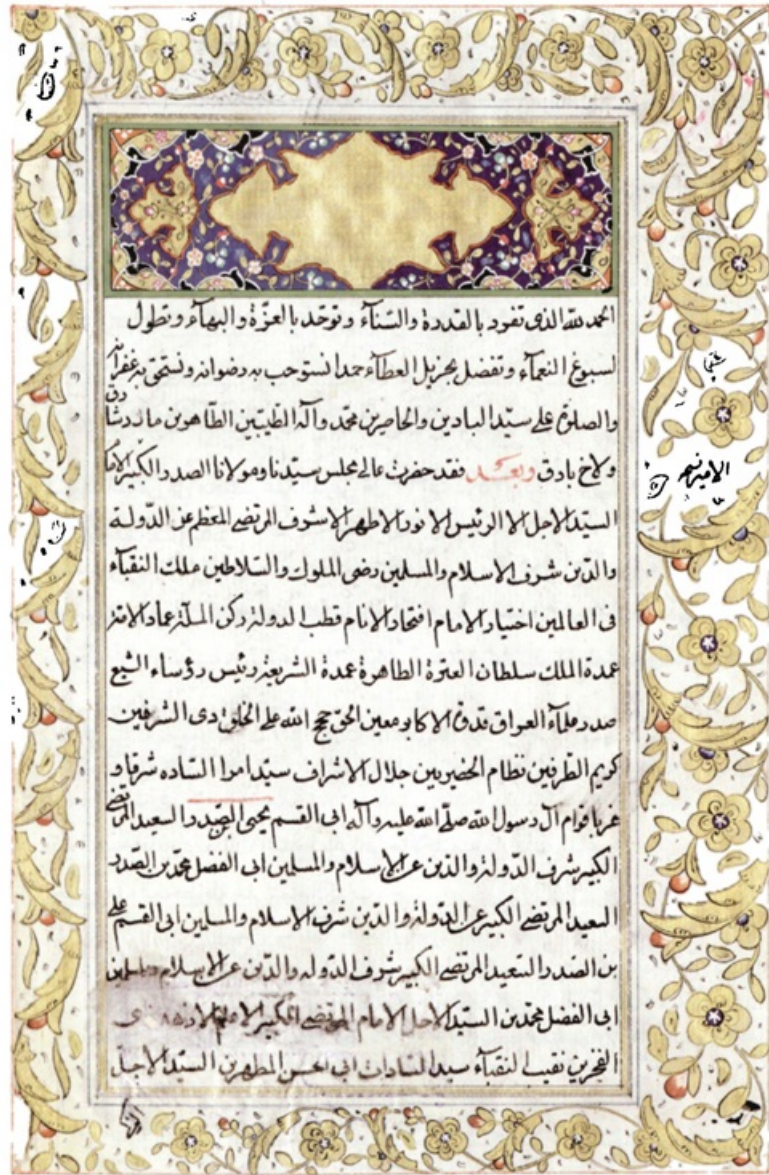 الحمد لله الذى تفرد بالقدرة والسناء وتوحد بالعزة والبهاء وتطول
لسبوغ النعماء وتفضل بجزيل العطاء حمدا نستوجب به رضوانه ونستحق به غفرانه
والصلوة على سيد البادين والحاضرين محمد وآله الطيبين الطاهرين ماذر شارق
ولاح بارق وبعد فقد حضرت عالى مجلس سيدنا ومولانا الصدر الكبير الامام
السيد الاجل الرئيس الانور الاطهر الاشرف المرتضى المعظم عز الدولة
والدين شرف الاسلام والمسلمين رضى الملوك والسلاطين ملك النقباء
فى العالمين اختيار الامام افتخار الانام قطب الدولة ركن الملة عماد الامة
عمدة الملك سلطان العترة الطاهرة عمدة الشريعة رئيس رؤساء الشيعة
صدر علماء العراق قدوة الاكابر معين الحق حجج الله على الخلق ذى الشرفين
كريم الطرفين نظام الحضرتين جلال الاشراف سيد امراء الساده شرقا و
غربا قوام آل رسول الله صلى الله عليه وآله ابى القسم يحيى بن الصدر السعيد المرتضى
الكبير شرف الدولة والدين عز الاسلام والمسلمين ابى الفضل محمد بن الصدر
السعيد المرتضى الكبير عز الدولة والدين شرف الاسلام والمسلمين ابى القسم على
بن الصدر السعيد المرتضى الكبير شرف الدوله والدين عز الاسلام والمسلمين
ابى الفضل محمد بن السيد الاجل الامام المرتضى الكبير الاعلم الازهد ذى
الفخرين نقيب النقباء سيد السادات ابى الحسن المطهر بن السيد الاجل